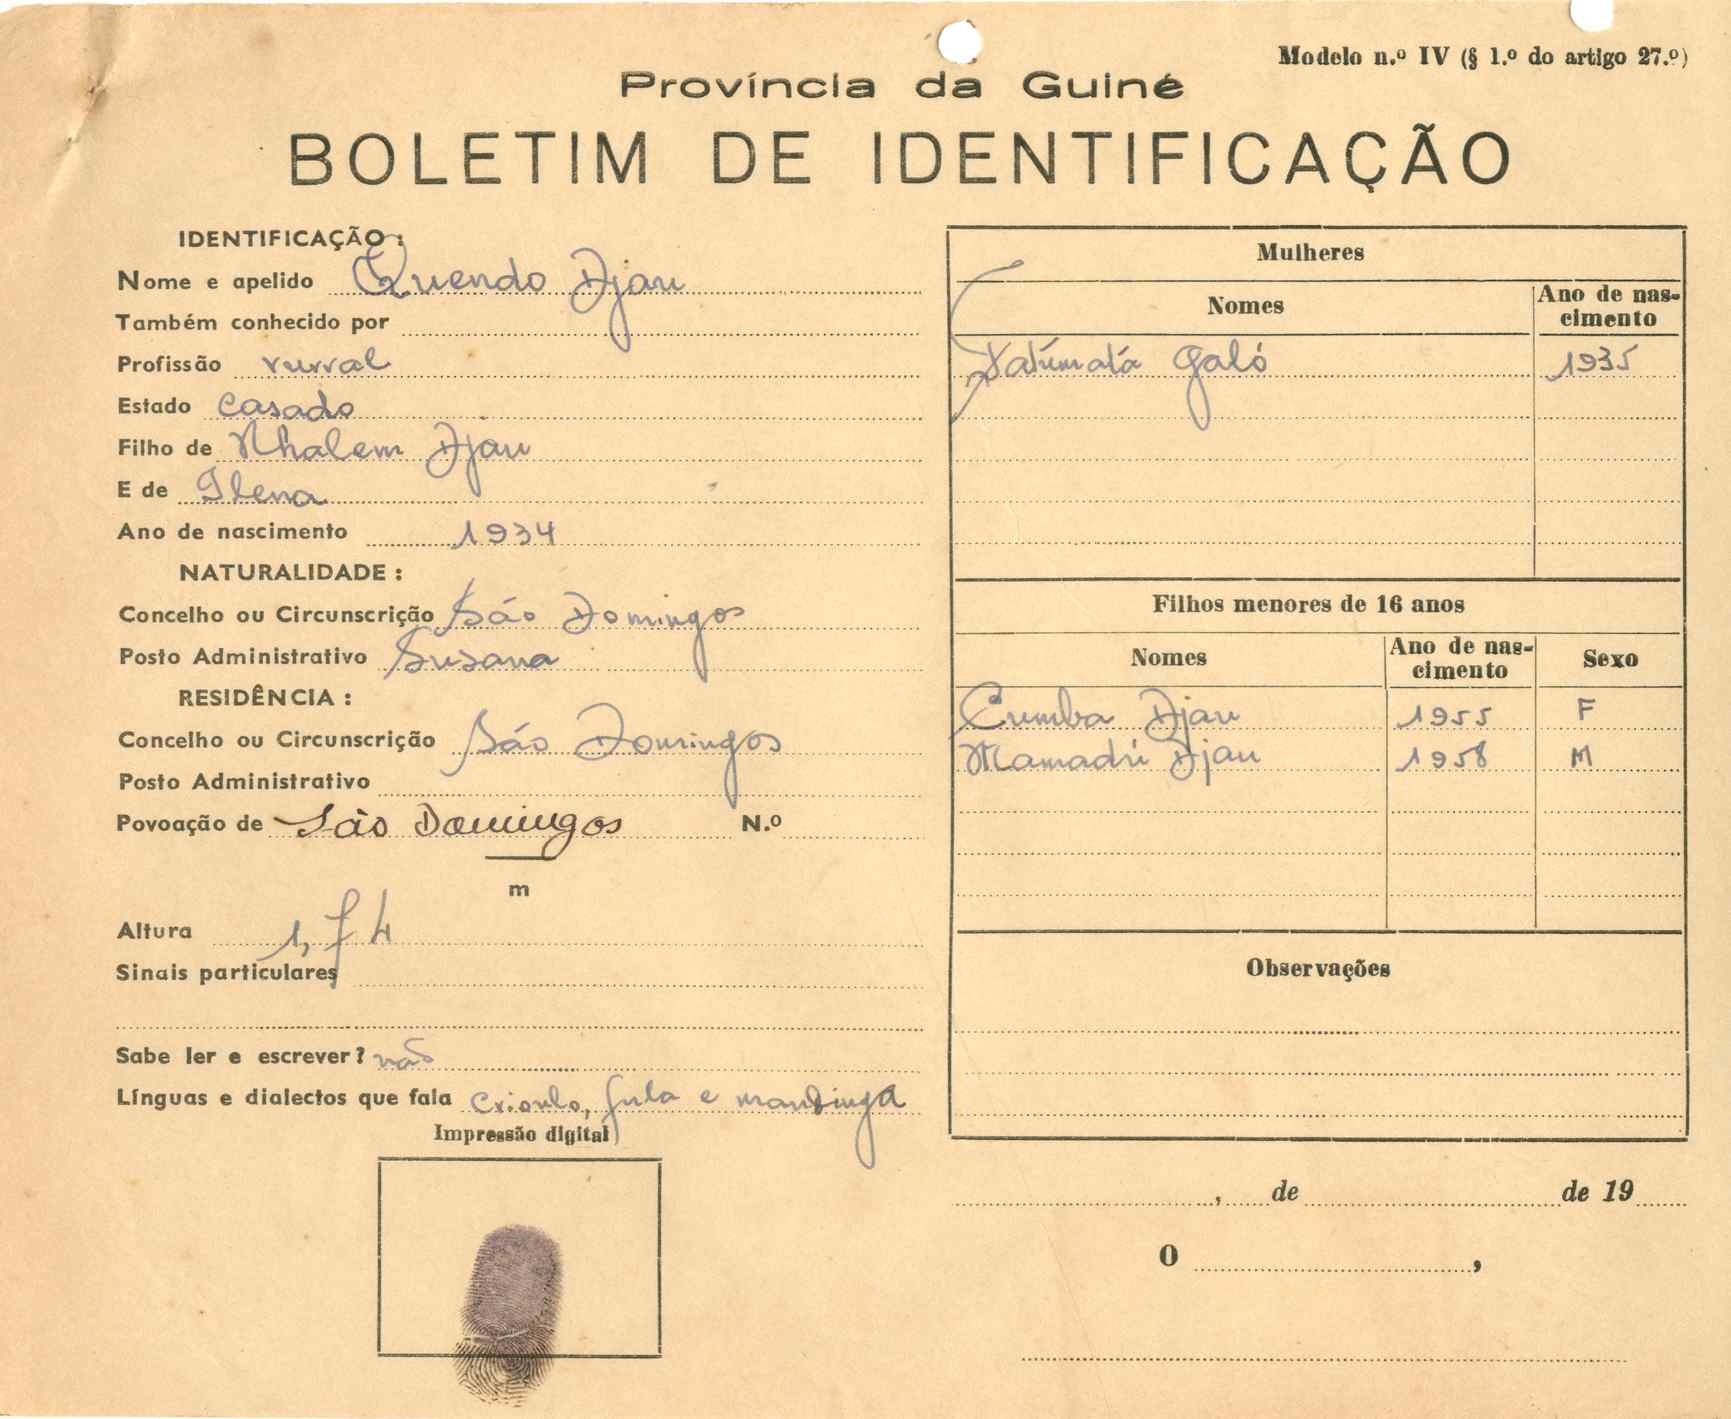 Modelo n.º IV (§ 1.º do artigo 27.º)
Província da Guiné
BOLETIM DE IDENTIFICAÇÃO
IDENTIFICAÇÃO :
Nome e apelido Quendo Djau
Também conhecido por
Profissão rurral
Estado casado
Filho de Nhalem Djau
E de Ilena
Ano de nascimento 1934
NATURALIDADE :
Concelho ou Circunscrição São Domingos
Posto Administrativo Susana
RESIDÊNCIA :
Concelho ou Circunscrição São Domingos
Posto Administrativo
Povoação de São Domingos N.º
m
Altura 1,74
Sinais particulares
Sabe ler e escrever? não
Línguas e dialectos que fala crioulo, fula e mandinga
Impressão digital
Mulheres
Nomes Ano de nas-
cimento
Fatúmatá Galó 1935
Filhos menores de 16 anos
Nomes Ano de nas-
cimento Sexo
Cumba Djau 1955 F
Mamadú Djau 1958 M
Observações
, de de 19
O ,